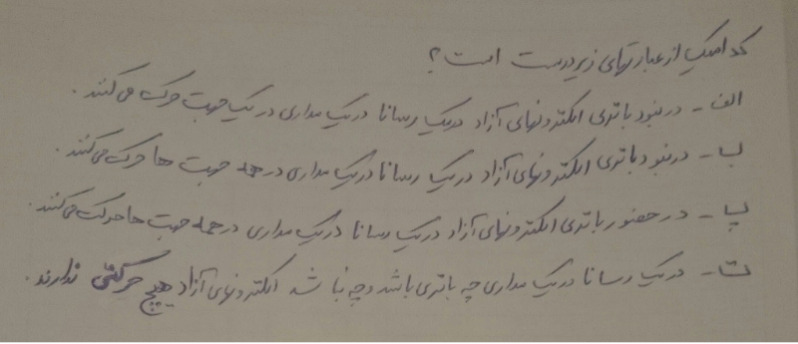 کدامیک از عبارتهای زیر درست است؟
الف - در نبود باتری الکترونهای آزاد در یک رسانا در یک مداری در یک جهت حرکت می کنند.
ب - در نبود باتری الکترونهای آزاد در یک رسانا در یک مداری در همه جهت ها حرکت می کنند.
پ - در حضور باتری الکترونهای آزاد در یک رسانا در یک مداری در همه جهت ها حرکت می کنند.
ت - در یک رسانا در یک مداری چه باتری باشد و چه نباشد الکترونهای آزاد هیچ حرکتی ندارند.